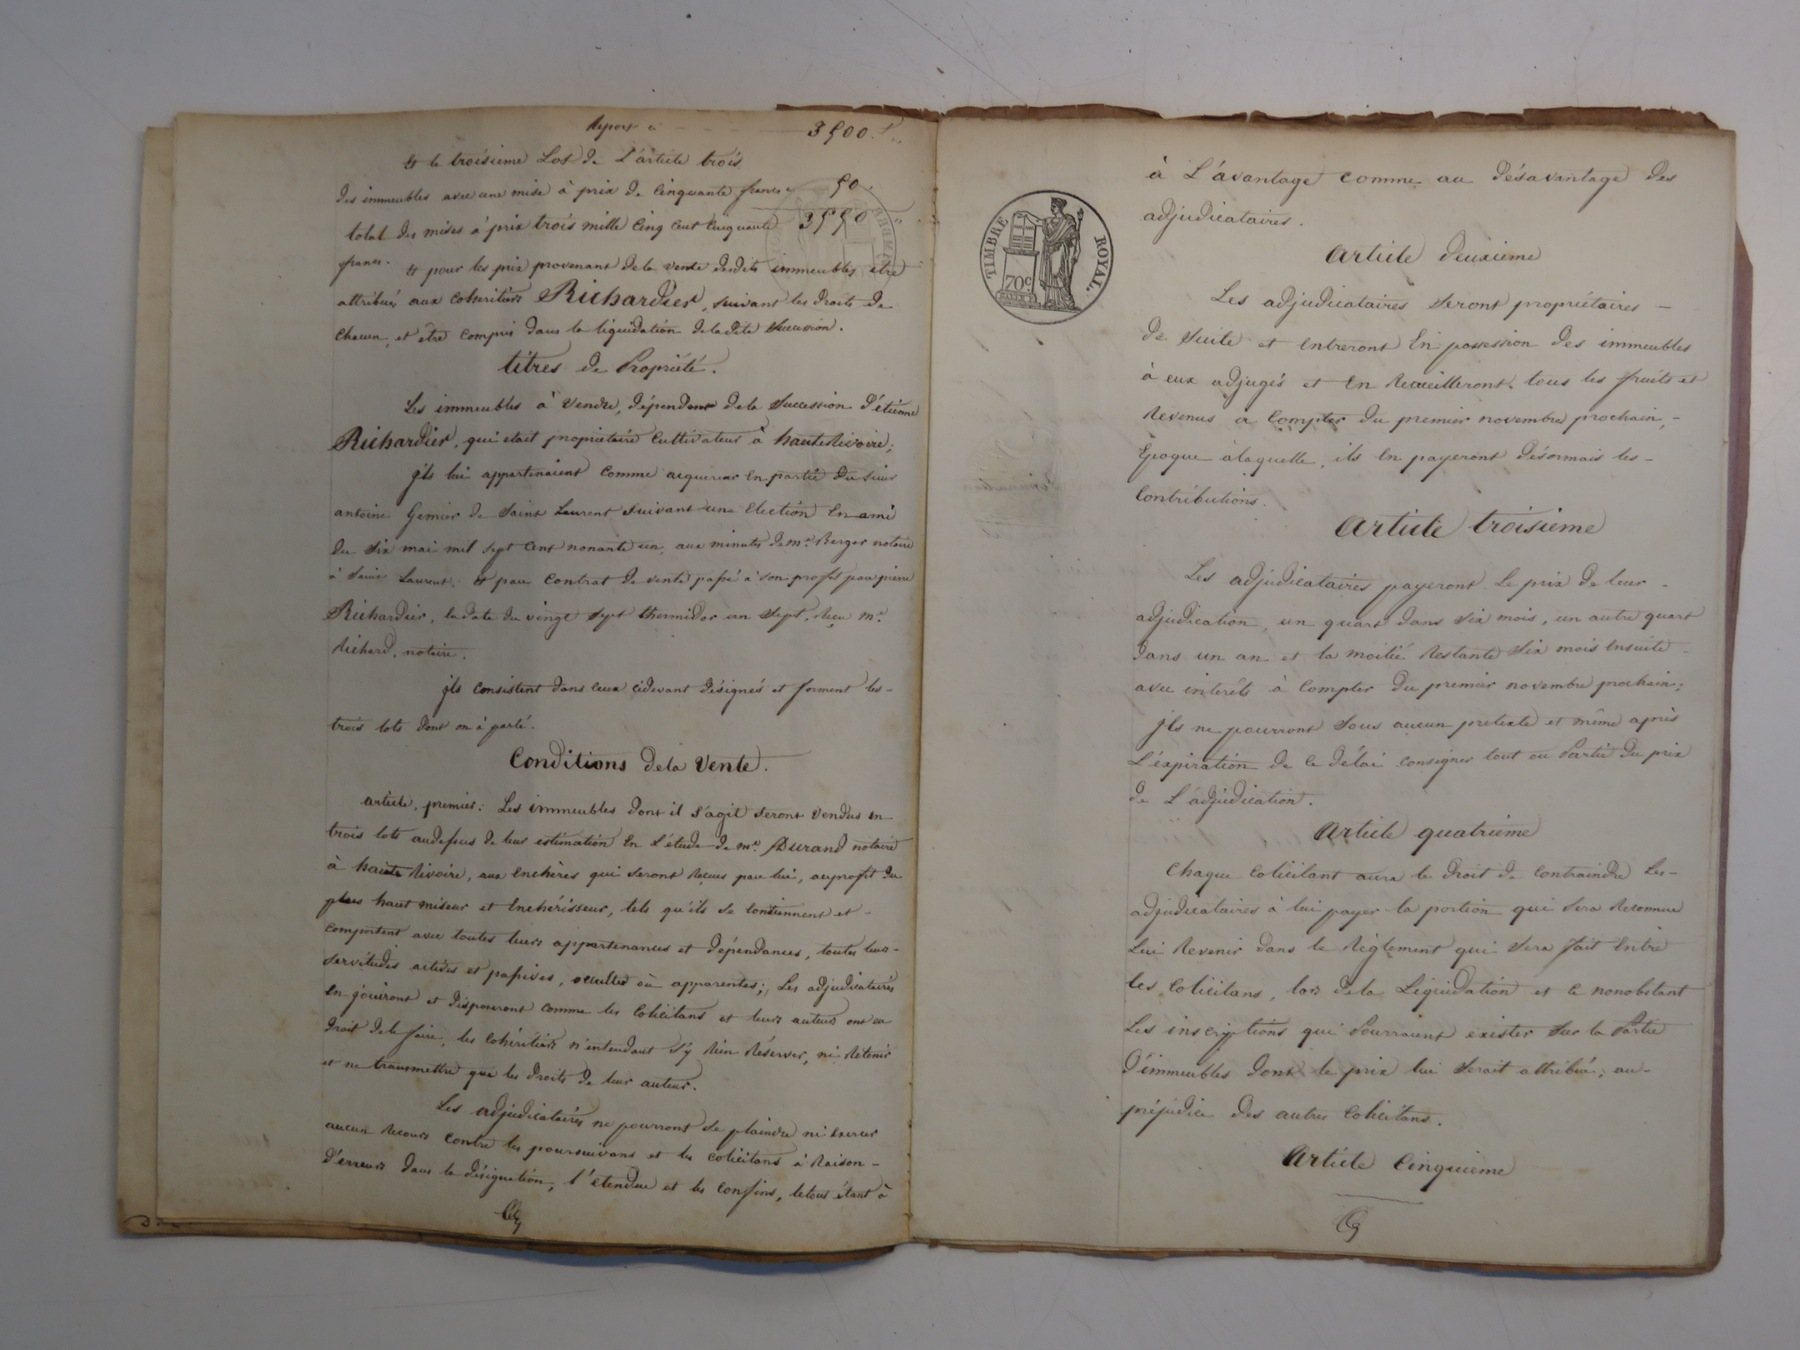 Report ci 3500. f..
Et le troisieme Lot de L'article trois
des immeubles avec une mise à prix de Cinquante francs 50.
total des mises à prix trois mille Cinq Cent Cinquante 3550 "
francs. Et pour les prix provenant de la vente desdits immeubles être
attribués aux Cohéritiers Richardier, suivant les droits de
Chacun, et être Compris dans la liquidation de la dite Succession.
titres de Propriété.
Les immeubles à Vendre, dépendent de la Succession d'étienne
Richardier, qui etait propriétaire Cultivateur à hauterivoire;
jls lui appartenaient Comme acquereur En partie du Sieur
antoine Gemier de Saint Laurent suivant une Election En ami
du Six mai mil sept Cent nonante un, aux minutes de me. Berger notaire
à Saint Laurent; Et par Contrat de vente passé à son profit par pierre
Richardier, En date du vingt Sept thermidor an Sept, Reçu me.
Richard, notaire.
jls Consistent dans Ceux cidevant désignés et forment les-
trois lots dont on à parlé.
Conditions de la Vente.
article, premier: Les immeubles dont il s'agit Seront Vendus En
trois lots audessus de leur estimation En L'étude de me. Durand notaire
à haute Rivoire, aux Enchères qui Seront Reçues par lui, au profit du
plus haut miseur et Enchérisseur, tels qu'ils Se Contiennent et-
Comportent avec toutes leurs appartenances et dépendances, toutes leurs-
Servitudes actives et passives, occultes où apparentes; Les adjudicataires
En jouiront et disposeront Comme les Colicitans et leurs auteurs ont eu
droit de le faire, les Cohéritiers n'entendant s'y Rien Réserver, ni Retenir
et ne transmettre que les droits de leur auteur.
Les adjudicataires ne pourront Se plaindre ni Exercer
aucun Recours Contre les poursuivans et les Colicitans à Raison-
d'erreurs dans la désignation, l'étendue et les Confins, le tout étant à
TIMBRE ROYAL.
70c.
à L'avantage Comme au désavantage des
adjudicataires.
Article deuxieme
Les adjudicataires Seront propriétaires -
de Suite et Entreront En possession des immeubles
à eux adjugés et En Recueilleront tous les fruits et
Revenus à Compter du premier novembre prochain,-
Epoque à laquelle, ils En payeront désormais les-
Contributions.
Article troisieme
Les adjudicataires payeront Le prix de leur -
adjudication, un quart dans Six mois, un autre quart
dans un an et la moitié Restante Six mois Ensuite -
avec intérêts à Compter du premier novembre prochain;
jls ne pourront Sous aucun pretexte et même après
L'éxpiration de Ce délai Consigner tout ou Partie du prix
de L'adjudication.
Article quatrieme
Chaque Colicitant aura le droit de Contraindre Les-
adjudicataires à lui payer la portion qui Sera Reconnue
Lui Revenir dans le Réglement qui Sera fait Entre
les Colicitans, lors de la Liquidation et Ce nonobstant
Les inscriptions qui Pourraient exister Sur la Partie
d'immeubles dont le prix lui Serait attribué; au-
préjudice des autres Colicitans.
Article Cinquieme